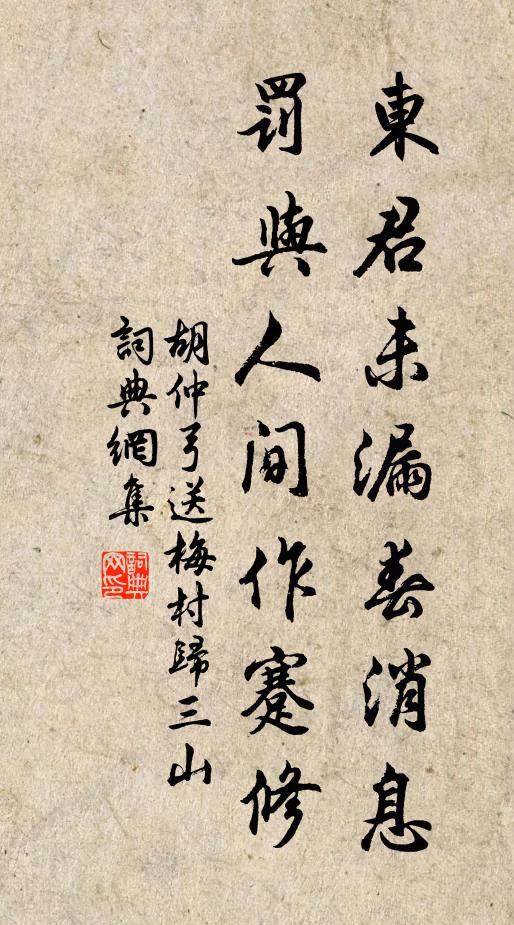 東君未漏春消息
罰與人間作蹇修
胡仲弓送梅村歸三山
詞典網集
詞典网印